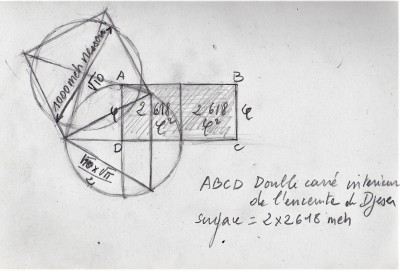 1000 meh nesout
√10
A
B
φ
2 618
φ²
2.618
φ²
φ
D
C
√10 × √π
2
ABCD Double carré interieur
de l'enceinte d Djeser
surface = 2x2618 meh